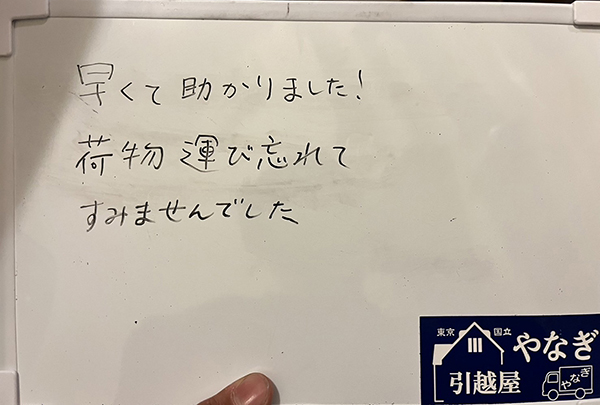 早くて助かりました!
荷物運び忘れて
すみませんでした
東京 国立
やなぎ
引越屋
やなぎ